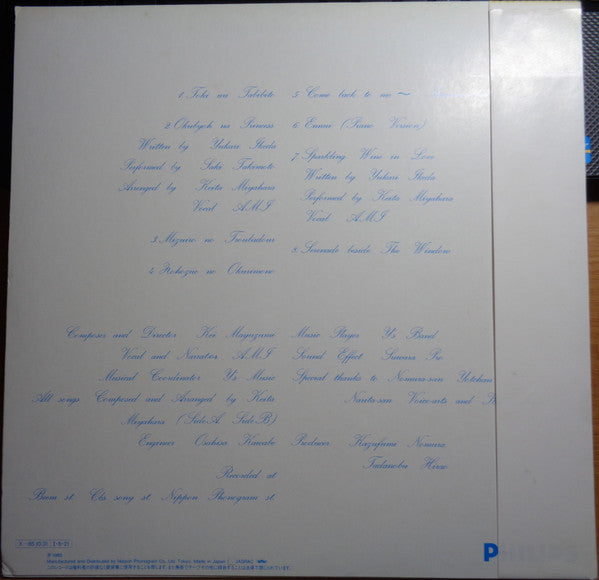 1 Toki no Tabibito
2 Okubyoh na Princess
Written by Yukari Ikeda
Performed by Saki Takimoto
Arranged by Keita Miyahara
Vocal A.M.I
3 Mizuiro no Troubadour
4 Hohozue no Okurimono
5 Come back to me ~
6 Ennui (Piano Version)
7 Sparkling Wine in Love
Written by Yukari Ikeda
Performed by Keita Miyahara
Vocal A.M.I
8 Serenade beside The Window
Composer and Director Kei Mayuzumi
Vocal and Narration A.M.I
Musical Coordinator Y's Music
All songs Composed and Arranged by Keita
Miyahara (Side.A. Side.B)
Engineer Osahisa Kawabe
Recorded at
Beem st. Cbs sony st. Nippon Phonogram st.
Music Player Y's Band
Sound Effect Suwara Pro
Special thanks to Nomura-san Yotchan
Narita-san Voice-arts and
Producer Kazufumi Nomura
Tadanobu Hirao
X ··85.10.21 Ⅰ-5-21
℗ 1985
Manufactured and Distributed by Nippon Phonogram Co., Ltd. Tokyo. Made in Japan JASRAC
PHILIPS